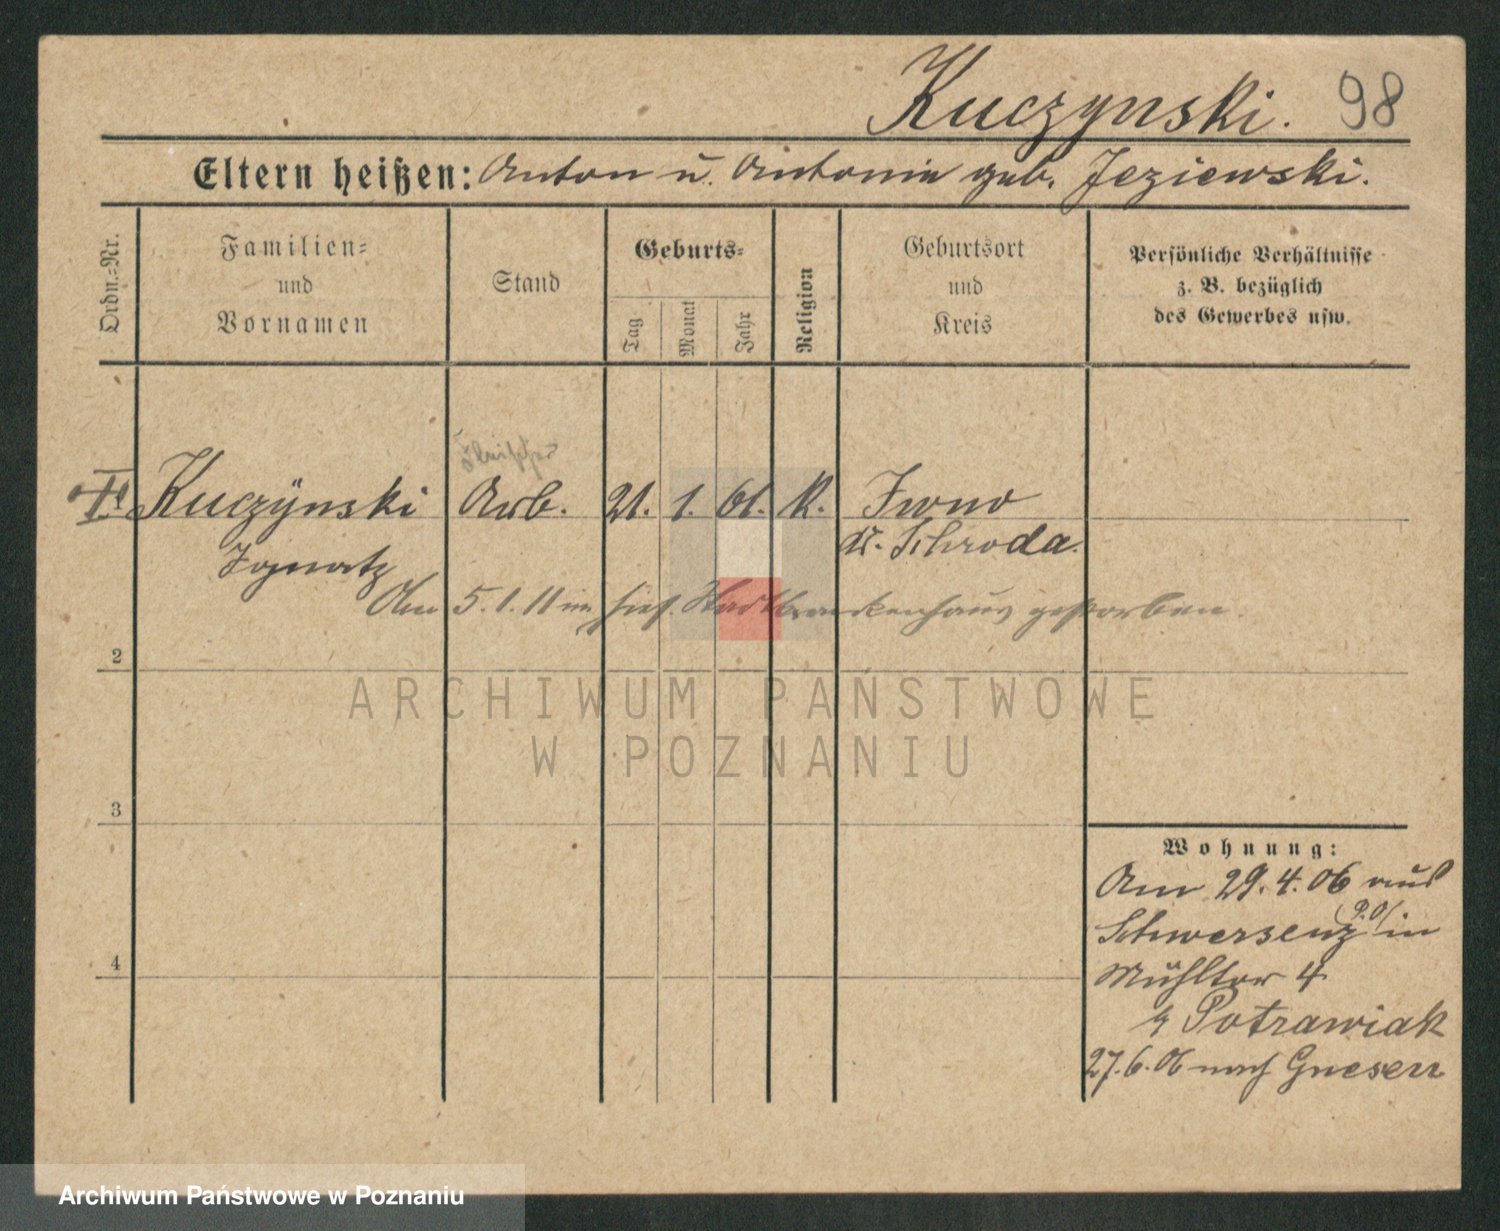 Kuczynski. 98
Eltern heißen: Anton u. Antonie geb. Jeziewski.
Ordn.=Nr.
Familien=
und
Vornamen
Stand
Geburts=
Tag
Monat
Jahr
Religion
Geburtsort
und
Kreis
Persönliche Verhältnisse
z. B. bezüglich
des Gewerbes usw.
Kuczÿnski Arb. 21. 1. 61. K. Iwno
Ignatz Kr. Schroda.
Am 5.1.11 im hies. Stadtkrankenhaus gestorben.
2
3
4
Wohnung:
Am 29.4.06 aus
Schwersenz (P.O) in
Mühltor 4
Potrawiak
27.6.06 nach Gnesen
ARCHIWUM PAŃSTWOWE
W POZNANIU
Archiwum Państwowe w Poznaniu